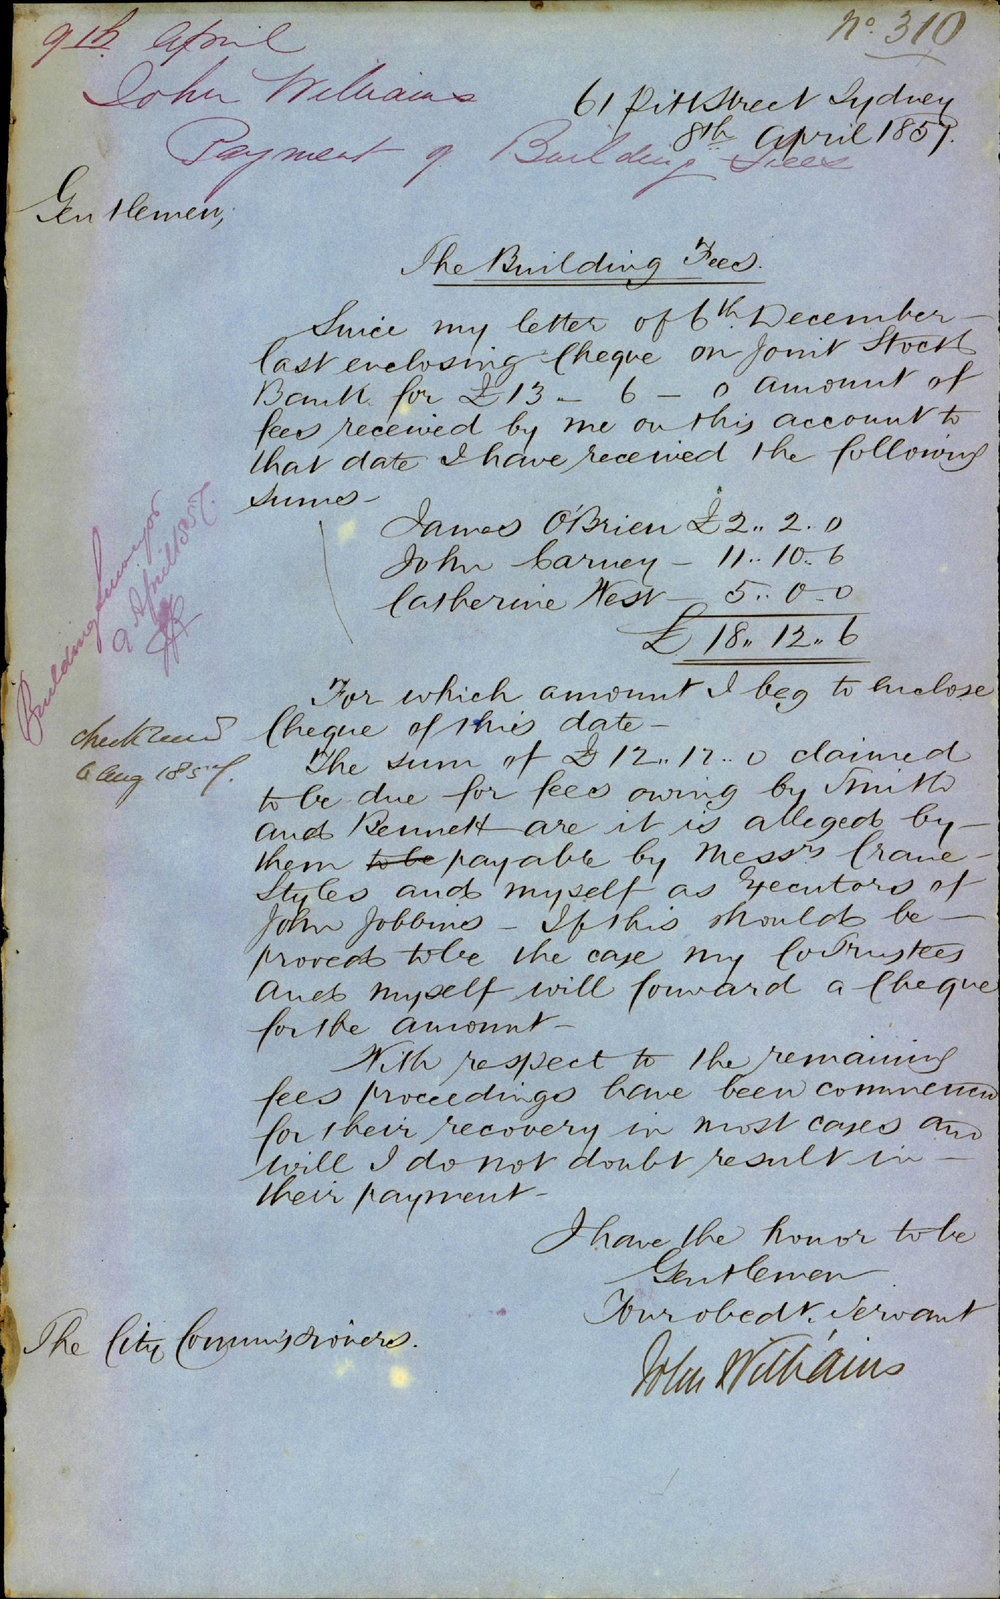 No. 310
9th April
John Williams
Payment of Building Fees
61 Pitt Street Sydney
8th April 1857.
Gentlemen,
The Building Fees.
Since my letter of 6th December
last enclosing Cheque on Joint Stock
Bank for £13 - 6 - 0 amount of
fees received by me on this account to
that date I have received the following
sums -
James O'Brien £2.. 2. 0
John Carney - 11.. 10. 6
Catherine West - 5.. 0. 0
£ 18.. 12.. 6
Building Surveyor
9 April 1857.
For which amount I beg to enclose
Cheque of this date -
check recd
6 Aug 1857.
The sum of £12.. 12.. 0 claimed
to be due for fees owing by Smith
and Bennett are it is alleged by
them to be payable by Messrs Crane
Styles and myself as Executors of
John Jobbins - If this should be
proved to be the case my CoTrustees
and myself will forward a Cheque
for the amount -
With respect to the remaining
fees proceedings have been commenced
for their recovery in most cases and
will I do not doubt result in
their payment -
I have the honor to be
Gentlemen
Your obedt. Servant
John Williams
The City Commissioners.